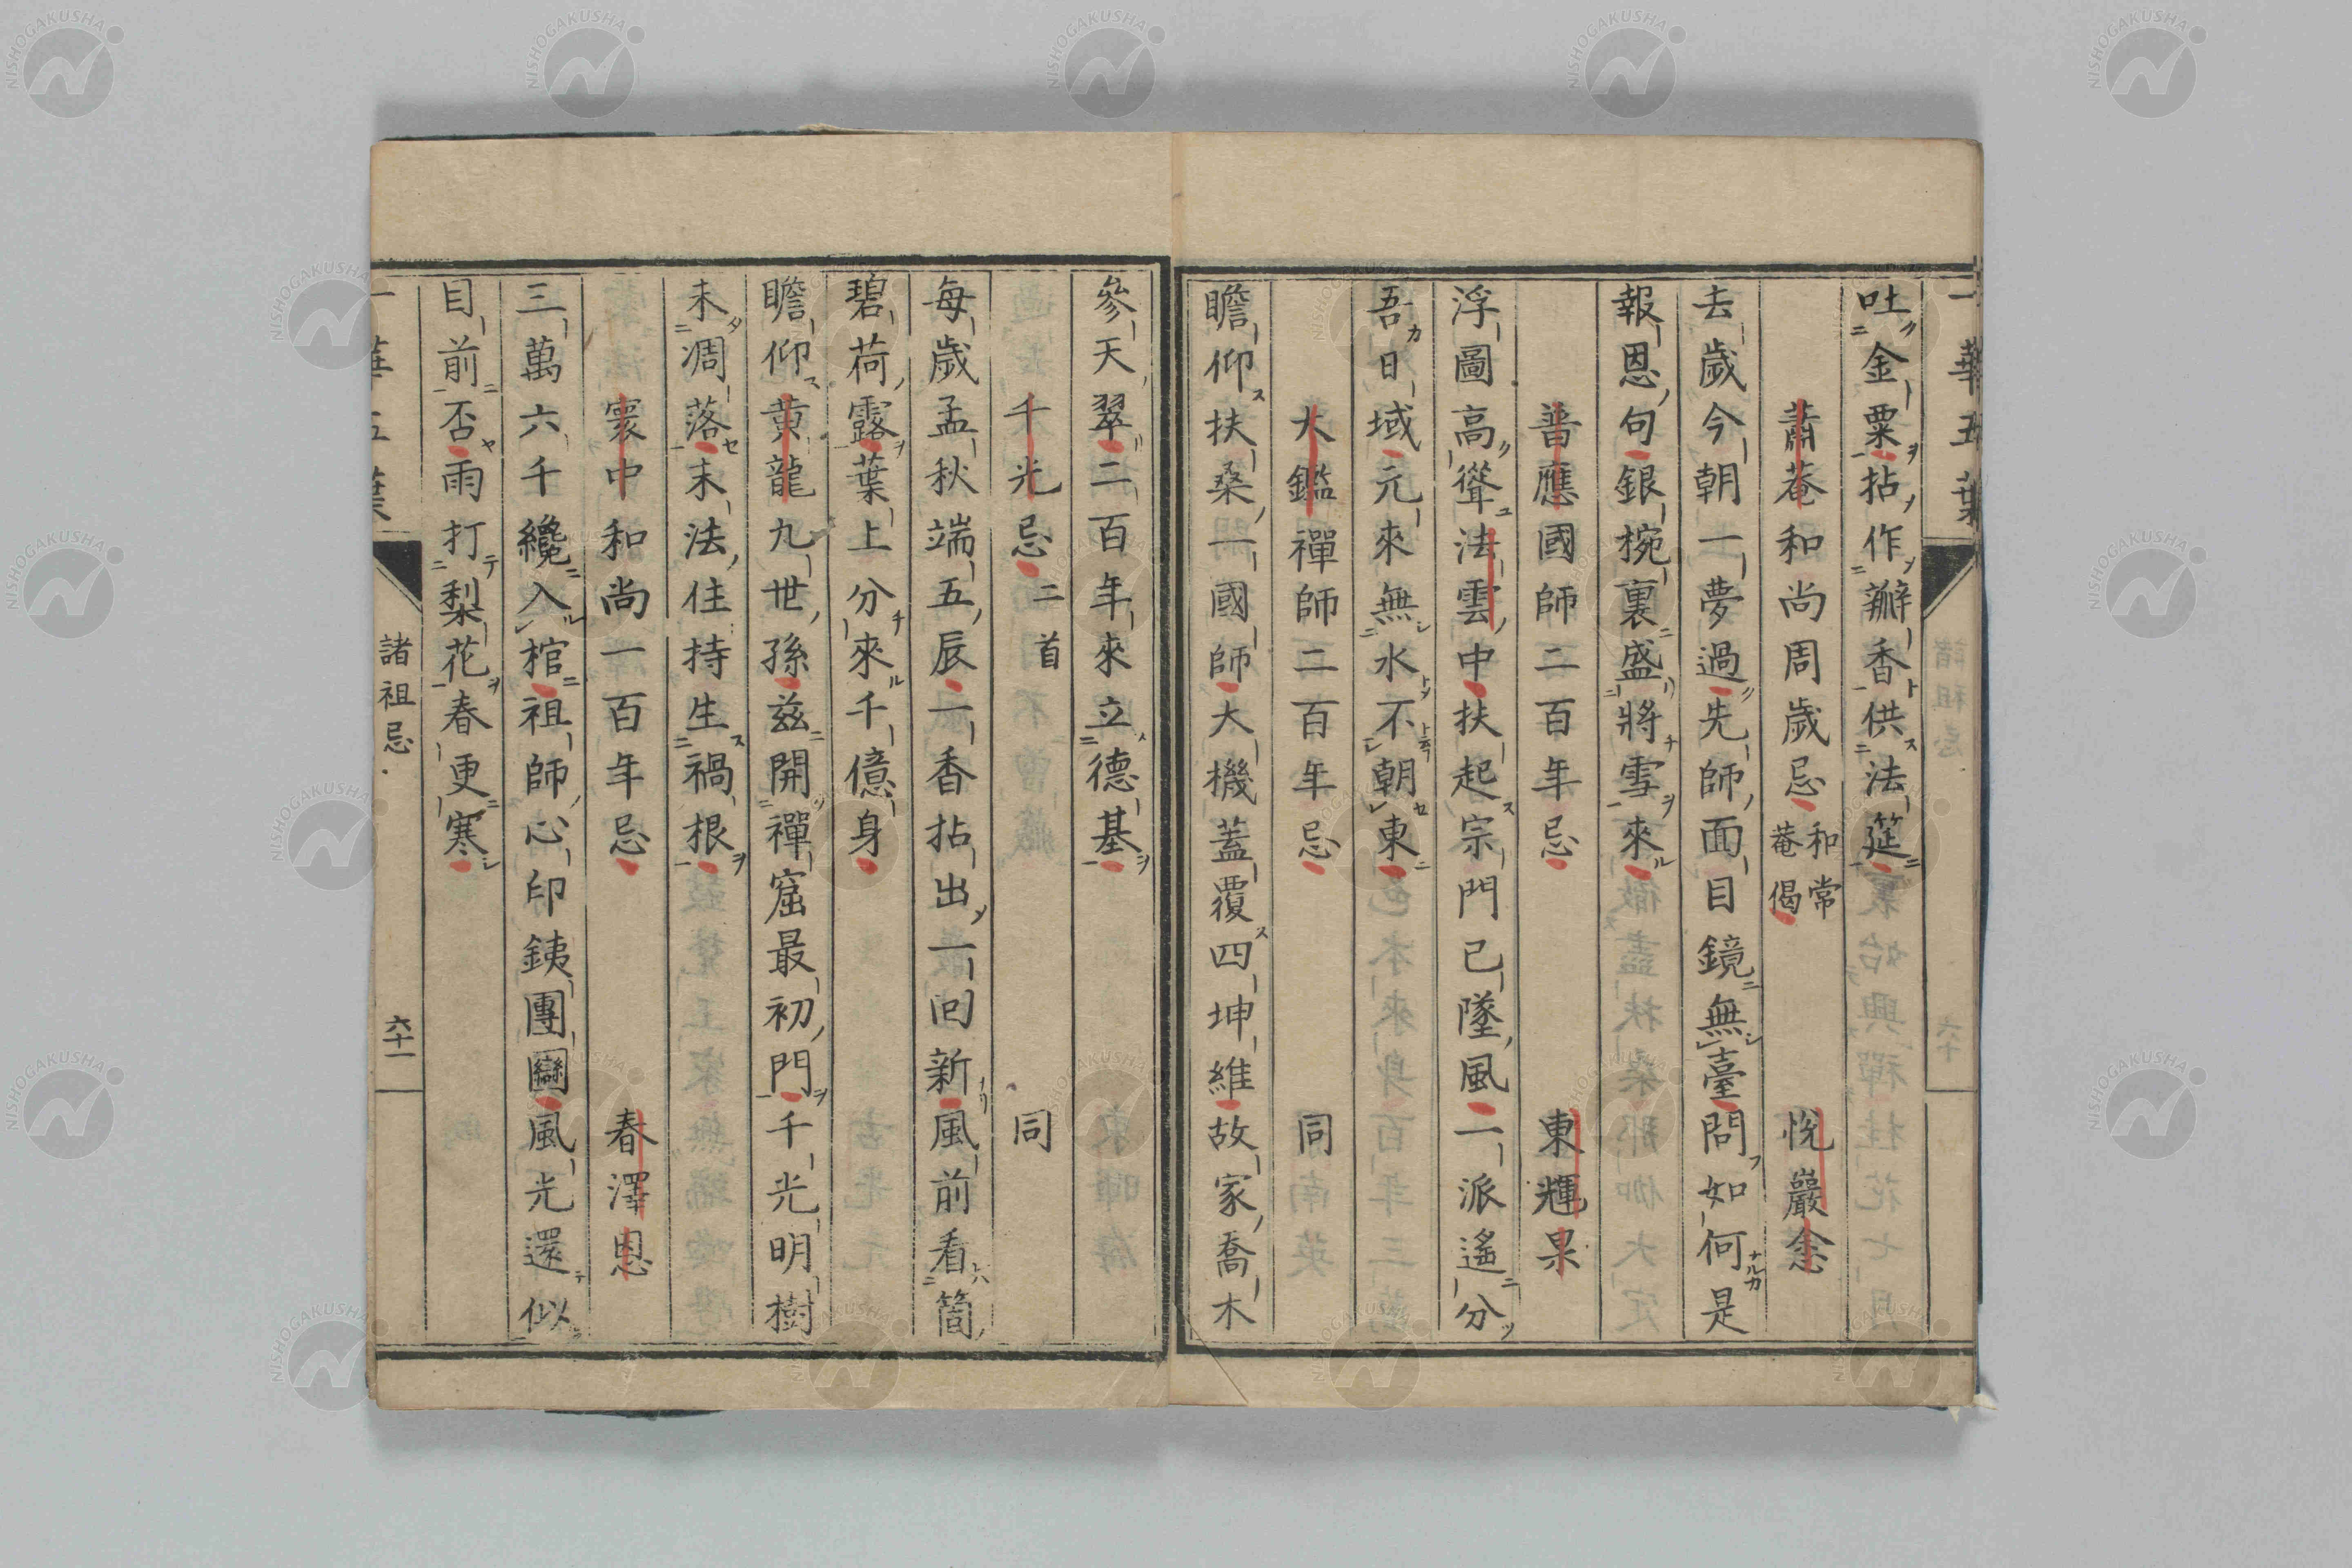 吐金粟拈作瓣香供法筵
蕭菴和尚周歲忌 和常菴偈 悅巖悆
去歲今朝一夢過先師面目鏡無臺問如何是
報恩句銀椀裏盛將雪來
普應國師二百年忌 東輝杲
浮圖高聳法雲中扶起宗門已墜風二派遙分
吾日域元來無水不朝東
大鑑禪師二百年忌 同
瞻仰扶桑一國師大機蓋覆四坤維故家喬木
參天翠二百年來立德基
千光忌 二首 同
每歲孟秋端五辰一香拈出一回新風前看箇
碧荷露葉上分來千億身
瞻仰黃龍九世孫茲開禪窟最初門千光明樹
未凋落末法住持生禍根
寰中和尚一百年忌 春澤恩
三萬六千纔入棺祖師心印銕團圞風光還似
目前否雨打梨花春更寒
諸祖忌
六十一